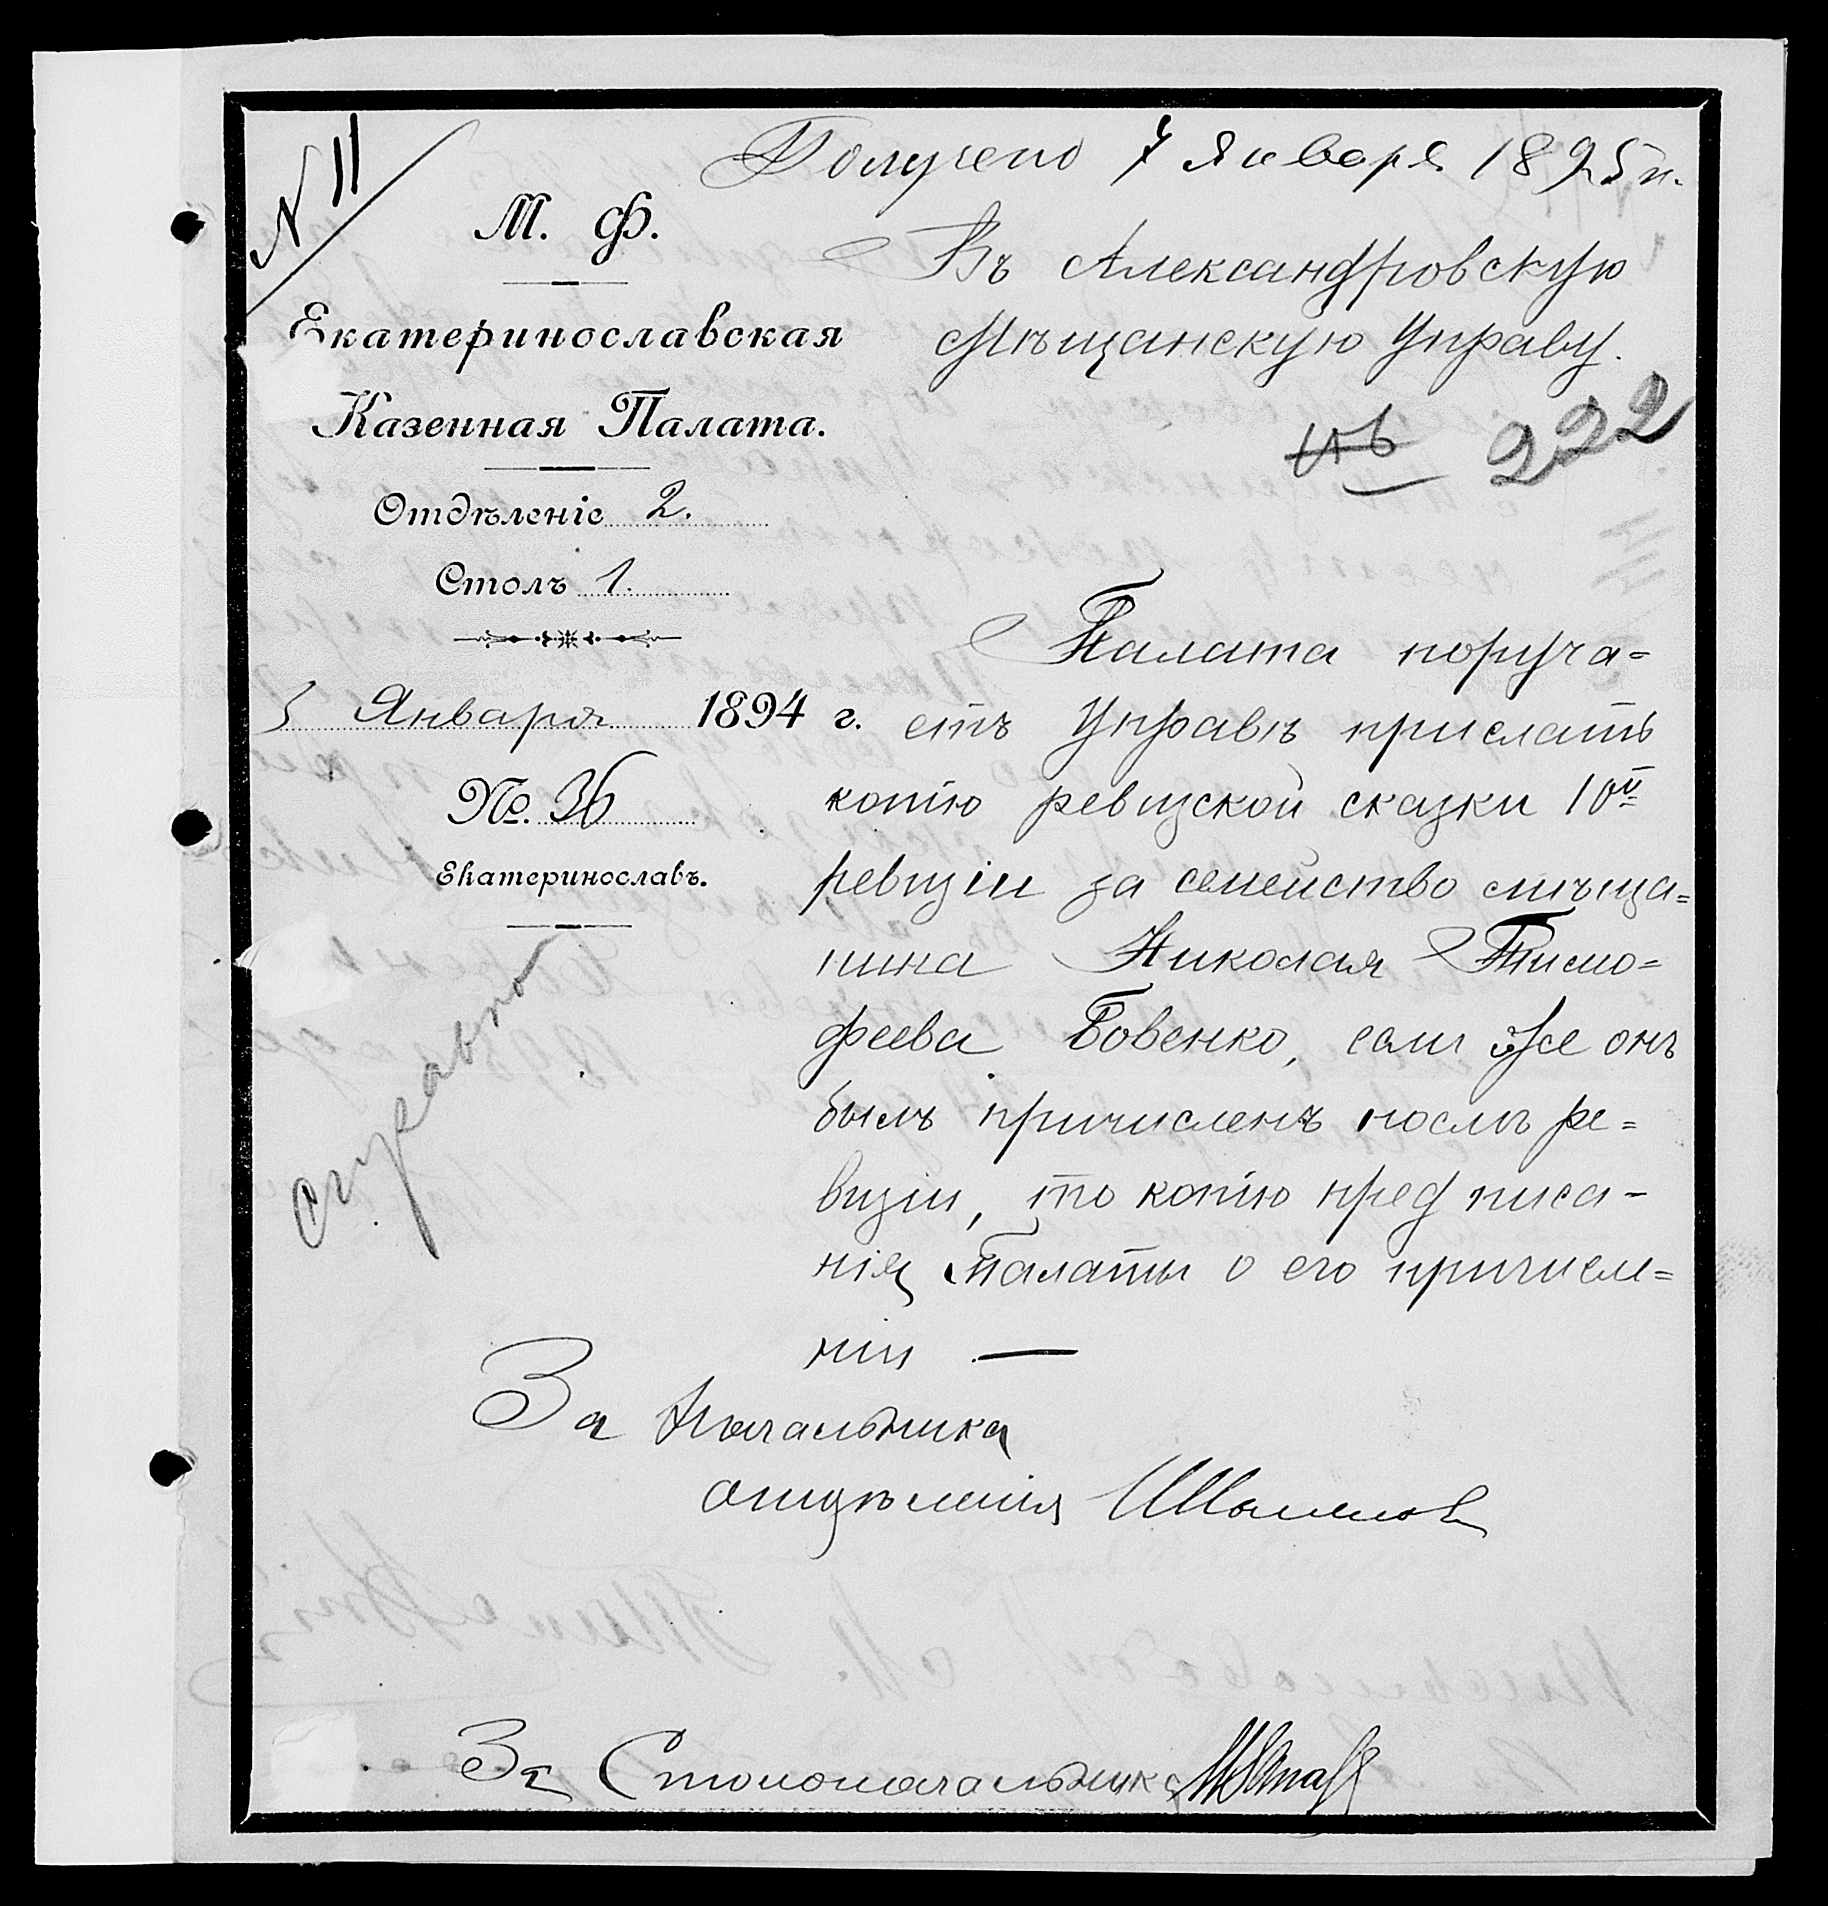 N 11
Получено 7 Января 1895 г.
М. Ф.
Екатеринославская
Казенная Палата.
Отдѣленіе 2.
Столъ 1.
5 Января 1894 г.
№ 36
Екатеринославъ.
Въ Александровскую
Мѣщанскую Управу.
222
Палата поруча=
етъ Управѣ прислать
копію ревизской сказки 10й
ревизіи за семейство мѣща=
нина Николая Тимо=
феева Бовенко, если же онъ
былъ причисленъ послѣ ре=
визіи, то копію предписа-
нія Палаты о его причисле=
ніи —
За Начальника
отдѣленія
За Столоначальника